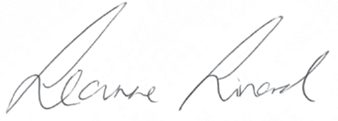 Leanne Rinard